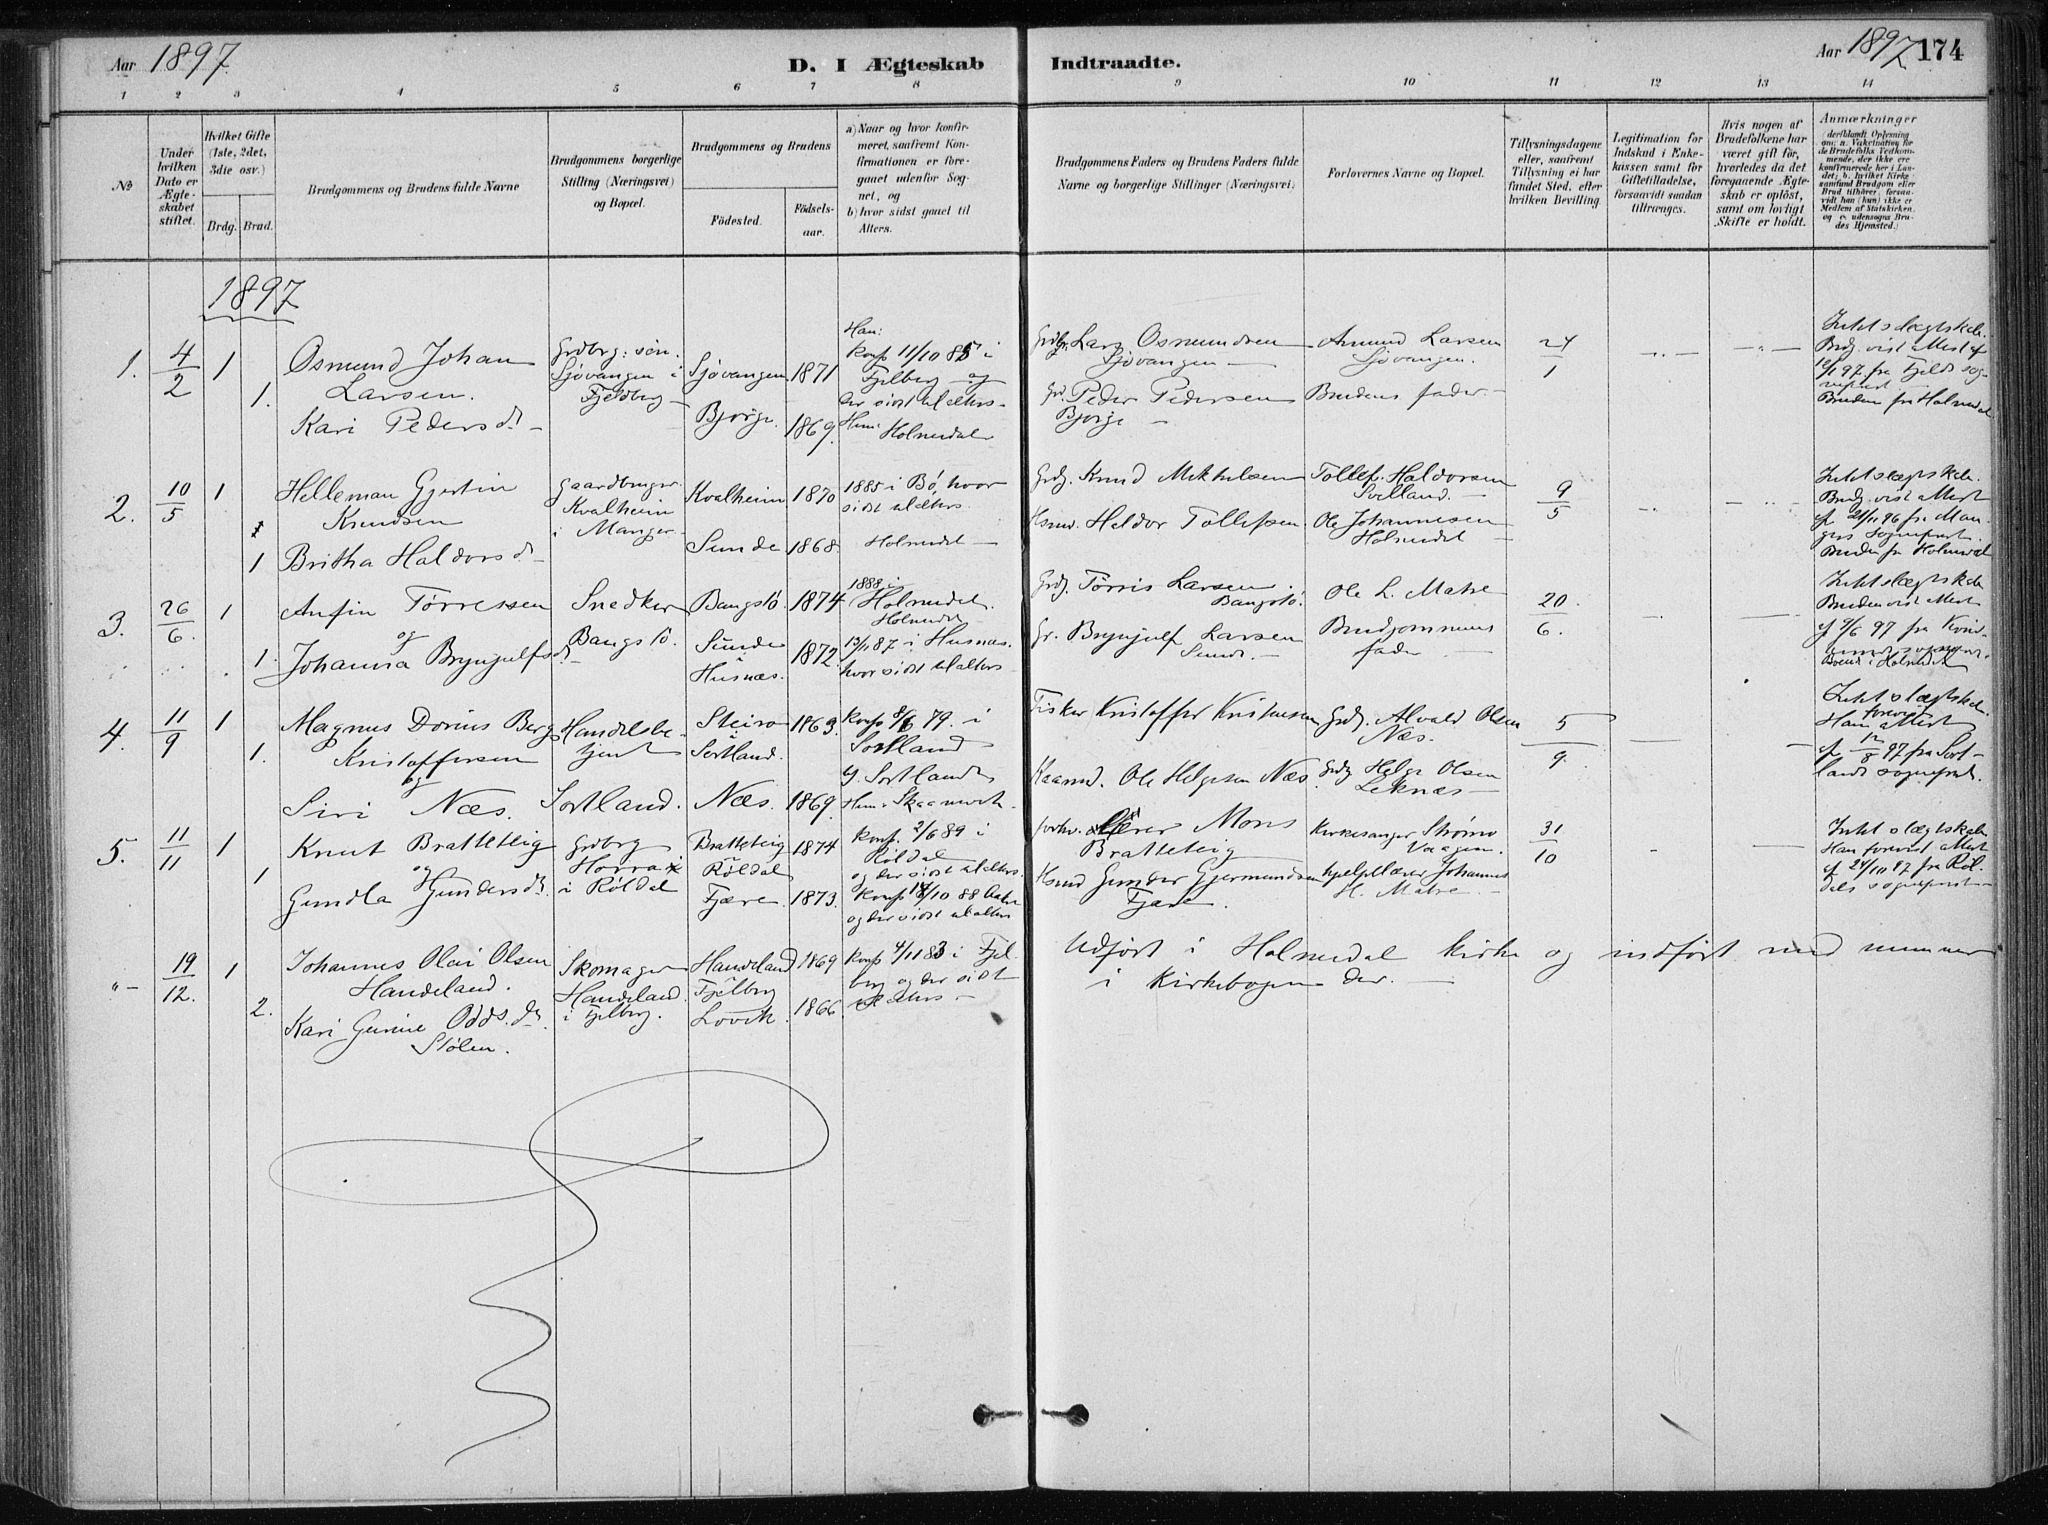 Aar 1897 D. I Ægteskab
Indtraadte. Aar 1897 174
1 2 3 4 5 6 7 8
9 10 11 12 13 14
No
Under hvilken Dato er Ægteskabet stiftet.
Hvilket Gifte (1ste, 2det, 3die osv.)
Brdg. Brud.
Brudgommens og Brudens fulde Navne
Brudgommens borgerlige Stilling (Næringsvei) og Bopæl.
Brudgommens og Brudens
Fødested.
Fødselsaar.
a) Naar og hvor konfirmeret, saafremt Konfirmationen er foregaaet udenfor Sognet, og
b) hvor sidst gaaet til Alters.
Brudgommens Faders og Brudens Faders fulde Navne og borgerlige Stillinger (Næringsvei)
Forlovernes Navne og Bopæl.
Tillysningsdagene eller, saafremt Tillysning ei har fundet Sted, efter hvilken Bevilling.
Legitimation for Indskud i Enkekassen samt for Giftetilladelse, forsaavidt saadan tiltrænges.
Hvis nogen af Brudefolkene har været gift før, hvorledes da det foregaaende Ægteskab er opløst, samt om lovligt Skifte er holdt.
Anmærkninger
(deriblandt Oplysning om: a. Vakcination for de Brudefolks Vedkommende, der ikke ere konfirmerede her i Landet; b. hvilket Kirkesamfund Brudgom eller Brud tilhører, forsaavidt han (hun) ikke er Medlem af Statskirken, og c. udensogns Brudes Hjemsted.)
1897
1. 4/2 1 1.
Osmund Johan
Larsen.
Kari Pedersd.
Grdbrg: søn.
Sjøvangen i
Fjeldberg
Sjøvangen 1871
Bjørge. 1869.
Han:
Konf 11/10 85 i
Fjelberg og
der sidst til alters
Holmedal
Grdbr. Lars Osmundsen
Sjøvangen
Gr. Peder Pedersen
Bjørge
Amund Larsen
Sjøvangen.
Brudens fader.
24/1
Brdg. vist Attest af
fra Fjelds sogneprest
Bruden fra Holmedal
2. 10/5 1 1
Helleman Gjertin
Knudsen
Britha Haldorsd.
Gaardbruger
Kvalheim
i Manger
Kvalheim 1870
Sunde 1868.
1885 i Bø, hvor
sidst til alters.
Holmedal
Grdg. Knud Mikkelsen
Hsmd. Haldor Tollefsen.
Tollef Haldorsen
Svelland.
Ole Johannesen
Holmedal
9/5
Brudg. vist Attest
af 21/11 96 fra Mangers sogneprest.
Bruden fra Holmedal
3. 26/6 1 1.
Anfin Tørressen
og
Johanna Brynjulfsd.
Snedker
Bangstø.
Bangstø. 1874
Sunde
Husnæs. 1872.
1888 i
Holmedal.
Holmedal
13/11 87 i Husnæs.
hvor sidst til alters
Grdg. Tørris Larsen
Bangstø.
Gr. Brynjulf Larsen
Sunde.
Ole L. Matre
Brudgommens
fader
20/6.
Bruden vist Attest
97 fra Kvindherreds sogneprest.
Boende i Holmedal
4. 11/9 1 1.
Magnus Dorius Berg
Kristoffersen
og
Siri Næs.
Handelsbetjent
Sortland.
Steiro
Sortland. 1863.
Næs. 1869.
Konf 8/6 79. i
Sortland
Skaanevik
Fisker Kristoffer Kristensen
Kaarmd. Ole Helgesen Næs.
Grdg. Alvald Olsen
Næs.
Grdg Helge Olsen
Leknæs
5/9
Han forevist Attest
af 12/8 97 fra Sortlands sogneprest.
5. 11/11 1 1
Knut Bratteteig
og
Gundla Gundersd.
Grdbrg
Horra
i Røldal
Bratteteig
Røldal 1874
Fjære. 1873.
Konf. 2/6 89 i
Røldal
og der sidst til alters.
og der sidst til alters
Mons
Bratteteig
Hsmd Gunder Gjermundsen
Fjære.
Kirkesanger Strømø
Vaagen.
hjelpelærer Johannes
H. Matre
31/10
Han forevist Attest
af 24/10 97 fra Røldals sogneprest
"- 19/12. 1 2.
Johannes Olai Olsen
Handeland.
Kari Gurine Odds.d.
Stølen.
Skomager
Handeland.
i Fjelberg.
Handeland 1869
Fjelberg
Løvik. 1866.
Konf 4/11 83 i Fjelberg og der sidst
til alters
Udført i Holmedal kirke og indført med nummer
i kirkebogen der.